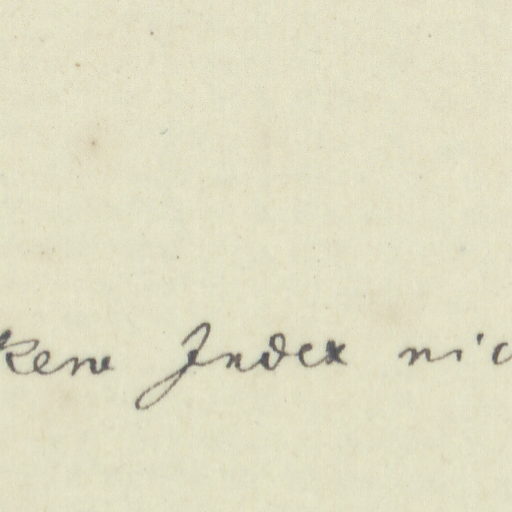 ken Index nic